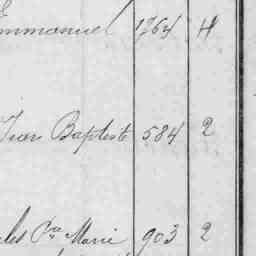 Emmanuel 1264 4
Jean Baptiste 584 2
les Marie 903 2